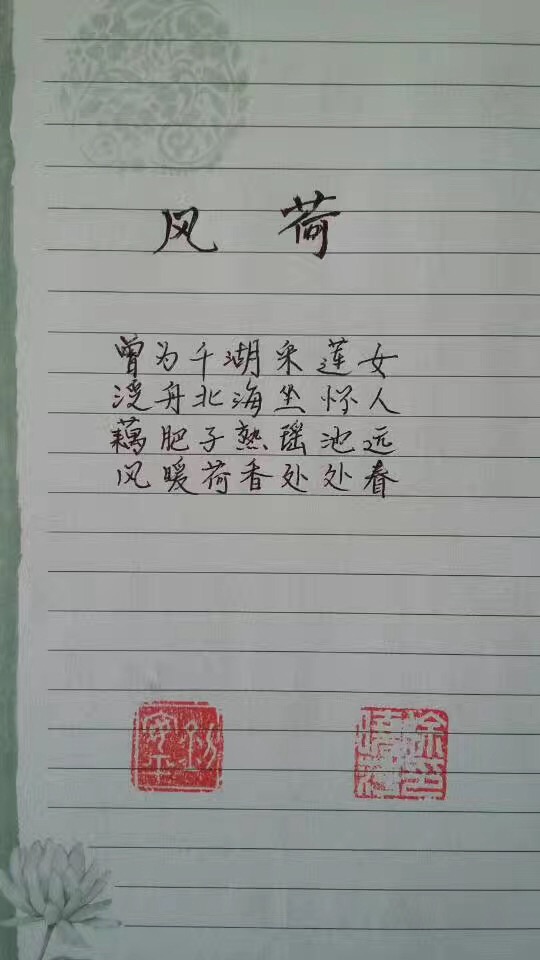 风荷
曾为千湖采莲女
浸舟北海坐怀人
藕肥子熟瑶池远
风暖荷香处处春